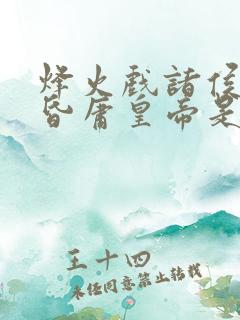 烽火戏诸侯
昏庸皇帝是
王十四
未经同意禁止转载